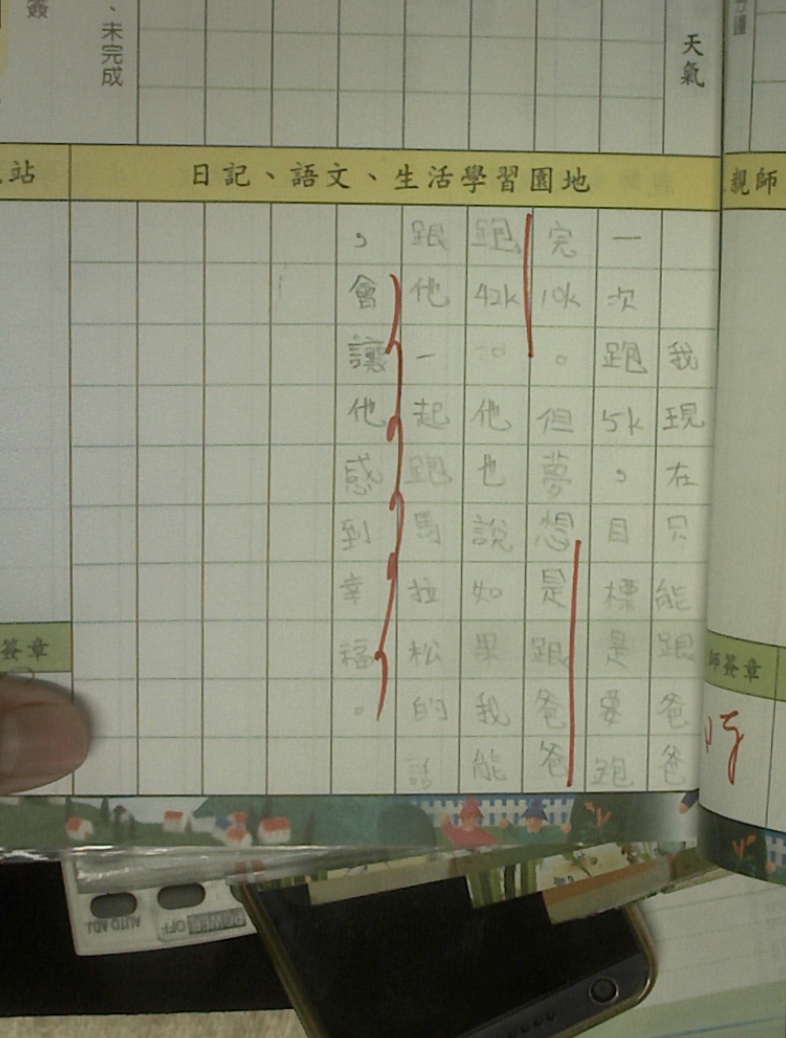 簽
、未完成
天氣
站
日記、語文、生活學習園地
親師
我現在只能跟爸爸
一次跑5k,目標是要跑
完10k。但夢想是跟爸爸
跑42k。他也說如果我能
跟他一起跑馬拉松的話
,會讓他感到幸福。
簽章
師簽章
POWER
OFF
AUTO ADJ.